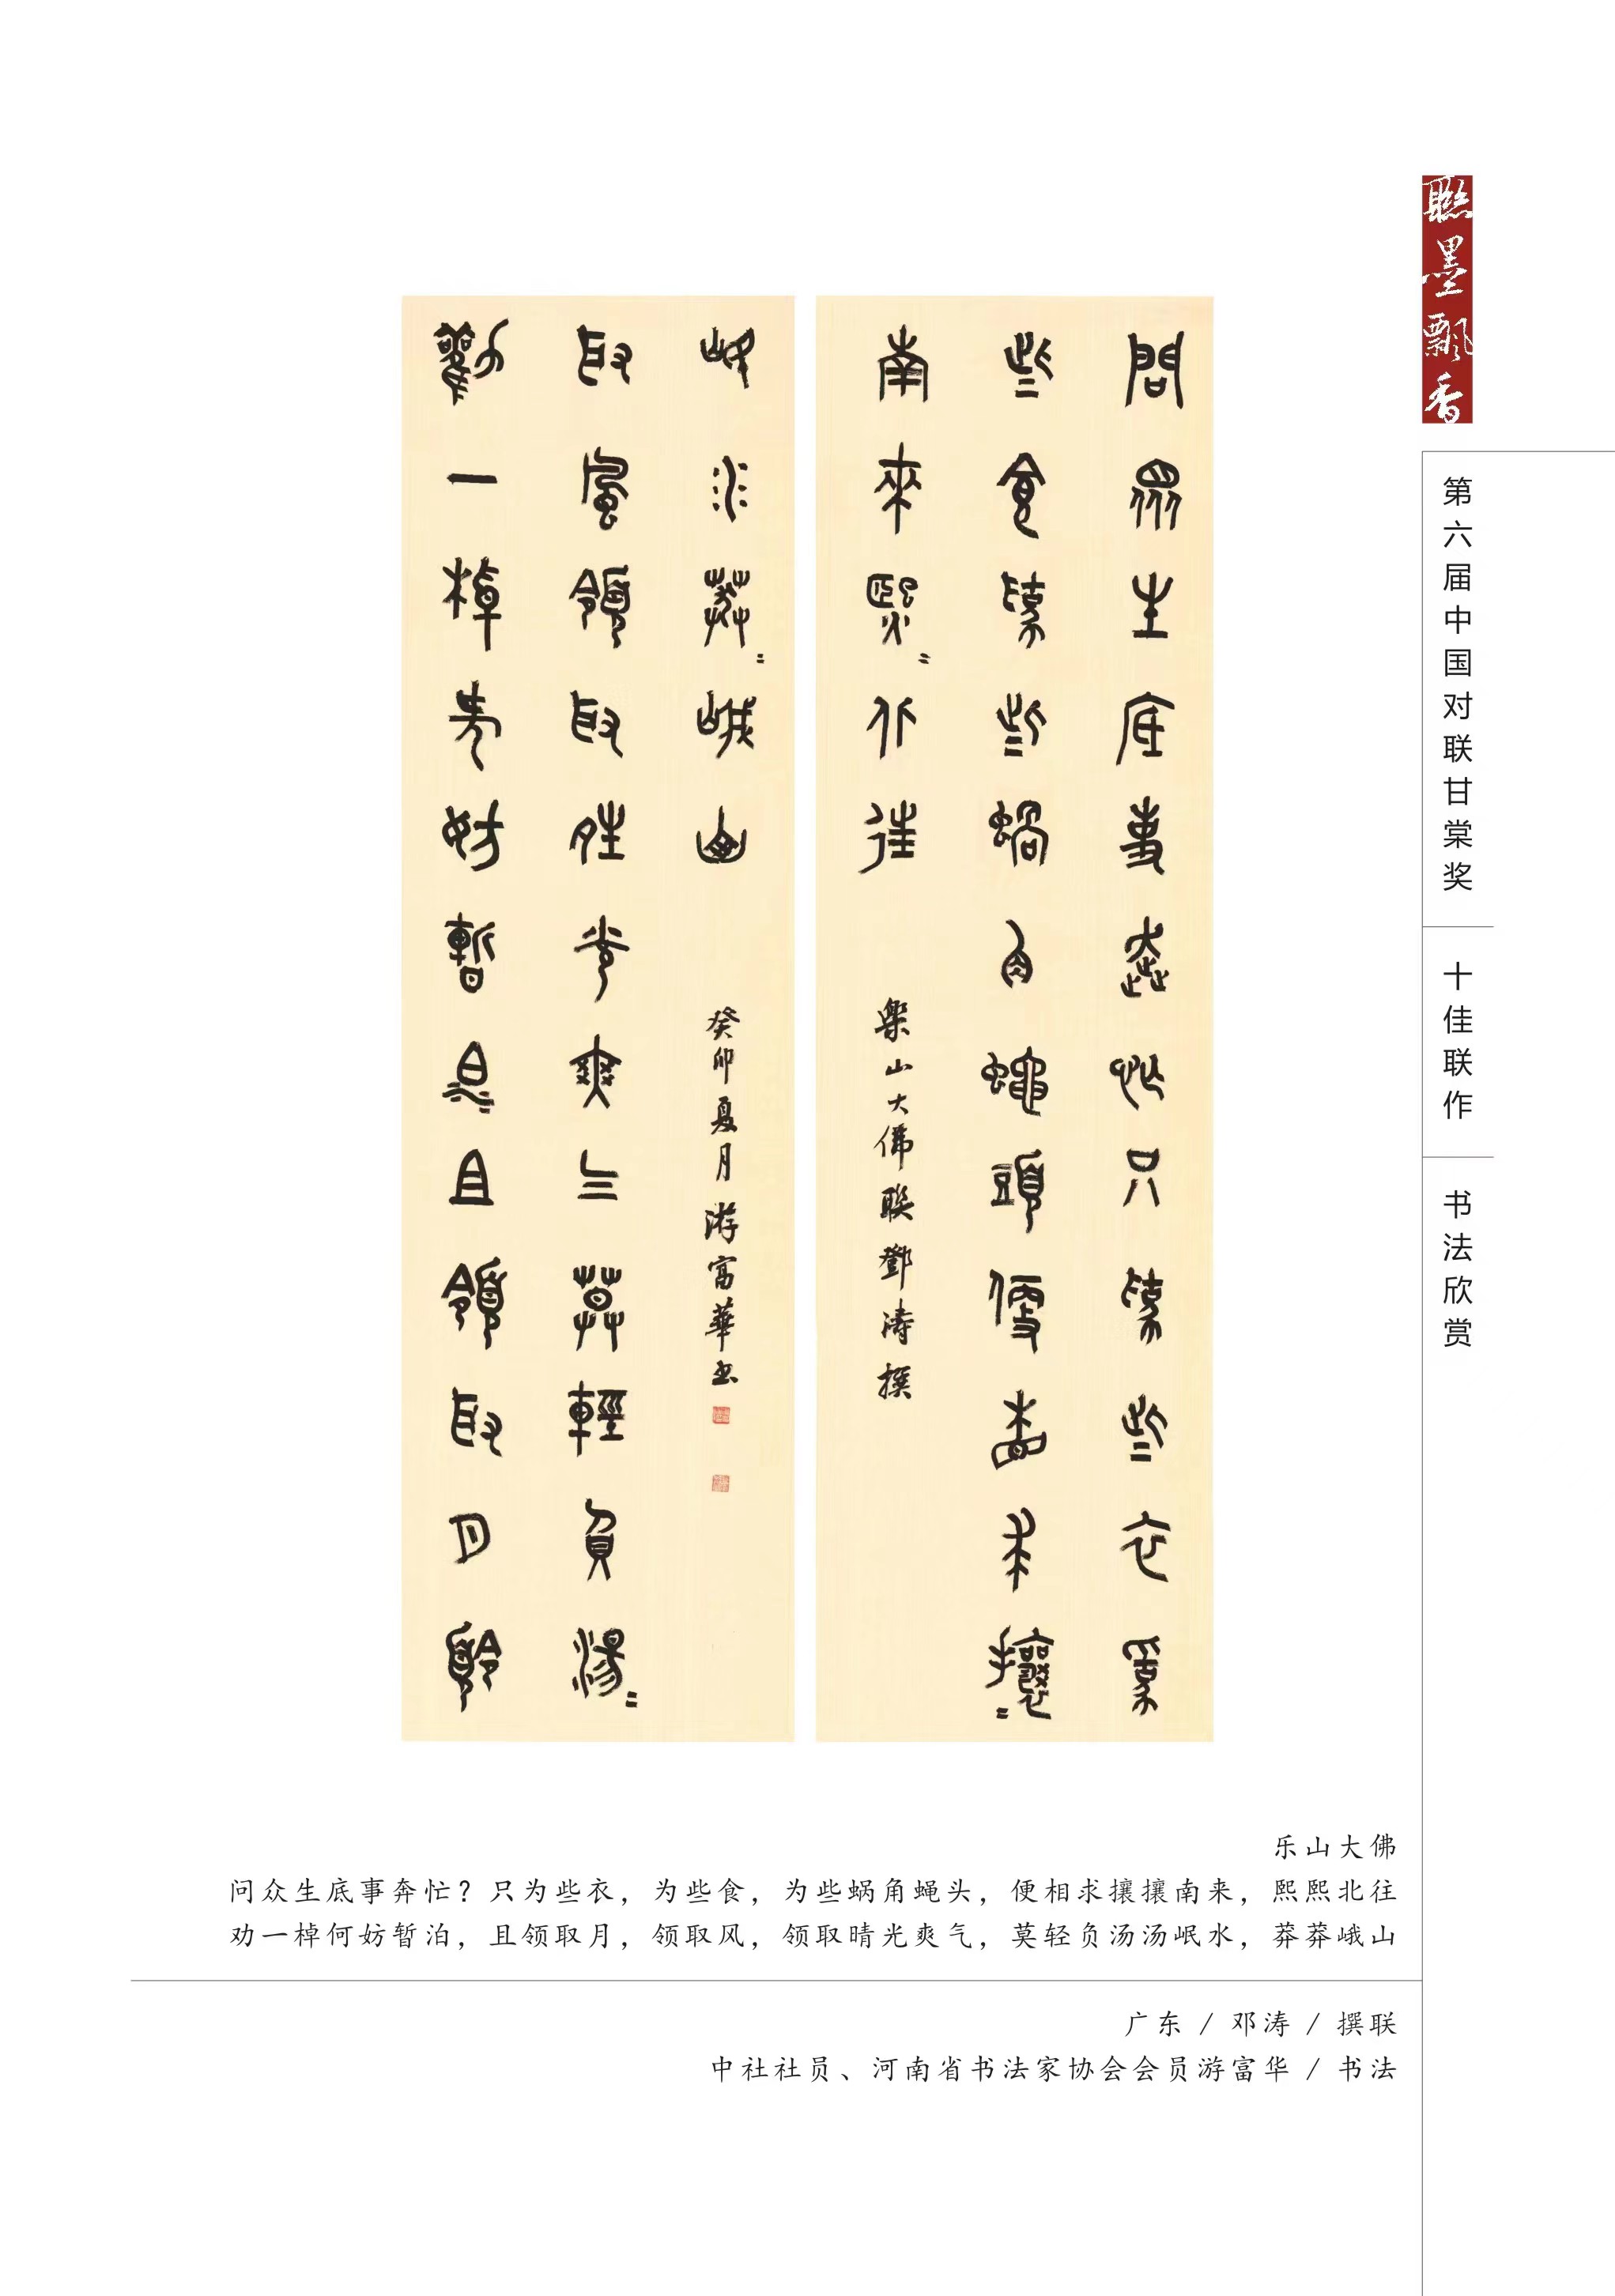 聯墨飄香
第六届中国对联甘棠奖
十佳联作
书法欣赏
問眾生底事奔忙只為些衣為
些食為些蝸角蠅頭便相求攘=
南來熙=北往
樂山大佛聯鄧濤撰
勸一棹何妨暫泊且領取月領
取風領取晴光爽气莫輕負湯=
岷水莽=峨山
癸卯夏月游富華書
乐山大佛
问众生底事奔忙？只为些衣，为些食，为些蜗角蝇头，便相求攘攘南来，熙熙北往
劝一棹何妨暂泊，且领取月，领取风，领取晴光爽气，莫轻负汤汤岷水，莽莽峨山
广东 / 邓涛 / 撰联
中社社员、河南省书法家协会会员游富华 / 书法